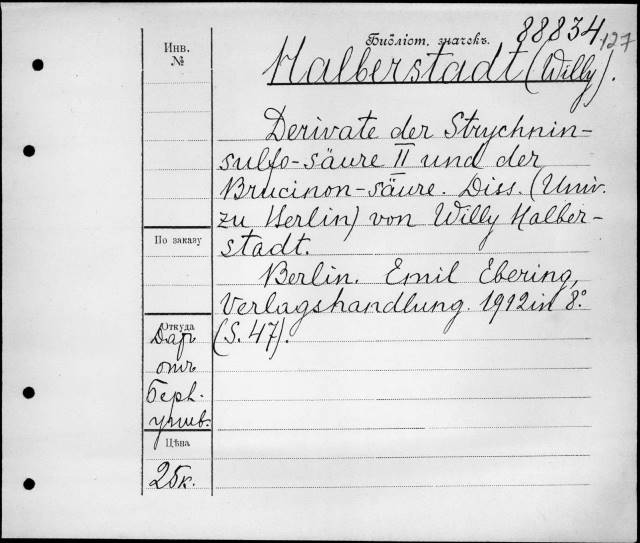 Инв.
№
Библіот. значекъ.
88834
127
Halberstadt (Willy).
Derivate der Strychnin-
sulfo-säure II und der
Brucinon-säure. Diss. (Univ.
zu Berlin) von Willy Halber-
stadt.
Berlin. Emil Ebering,
Verlagshandlung. 1912 in 8°.
(S. 47).
По заказу
Откуда
Даръ
отъ
Берл.
унив.
Цѣна
25к.